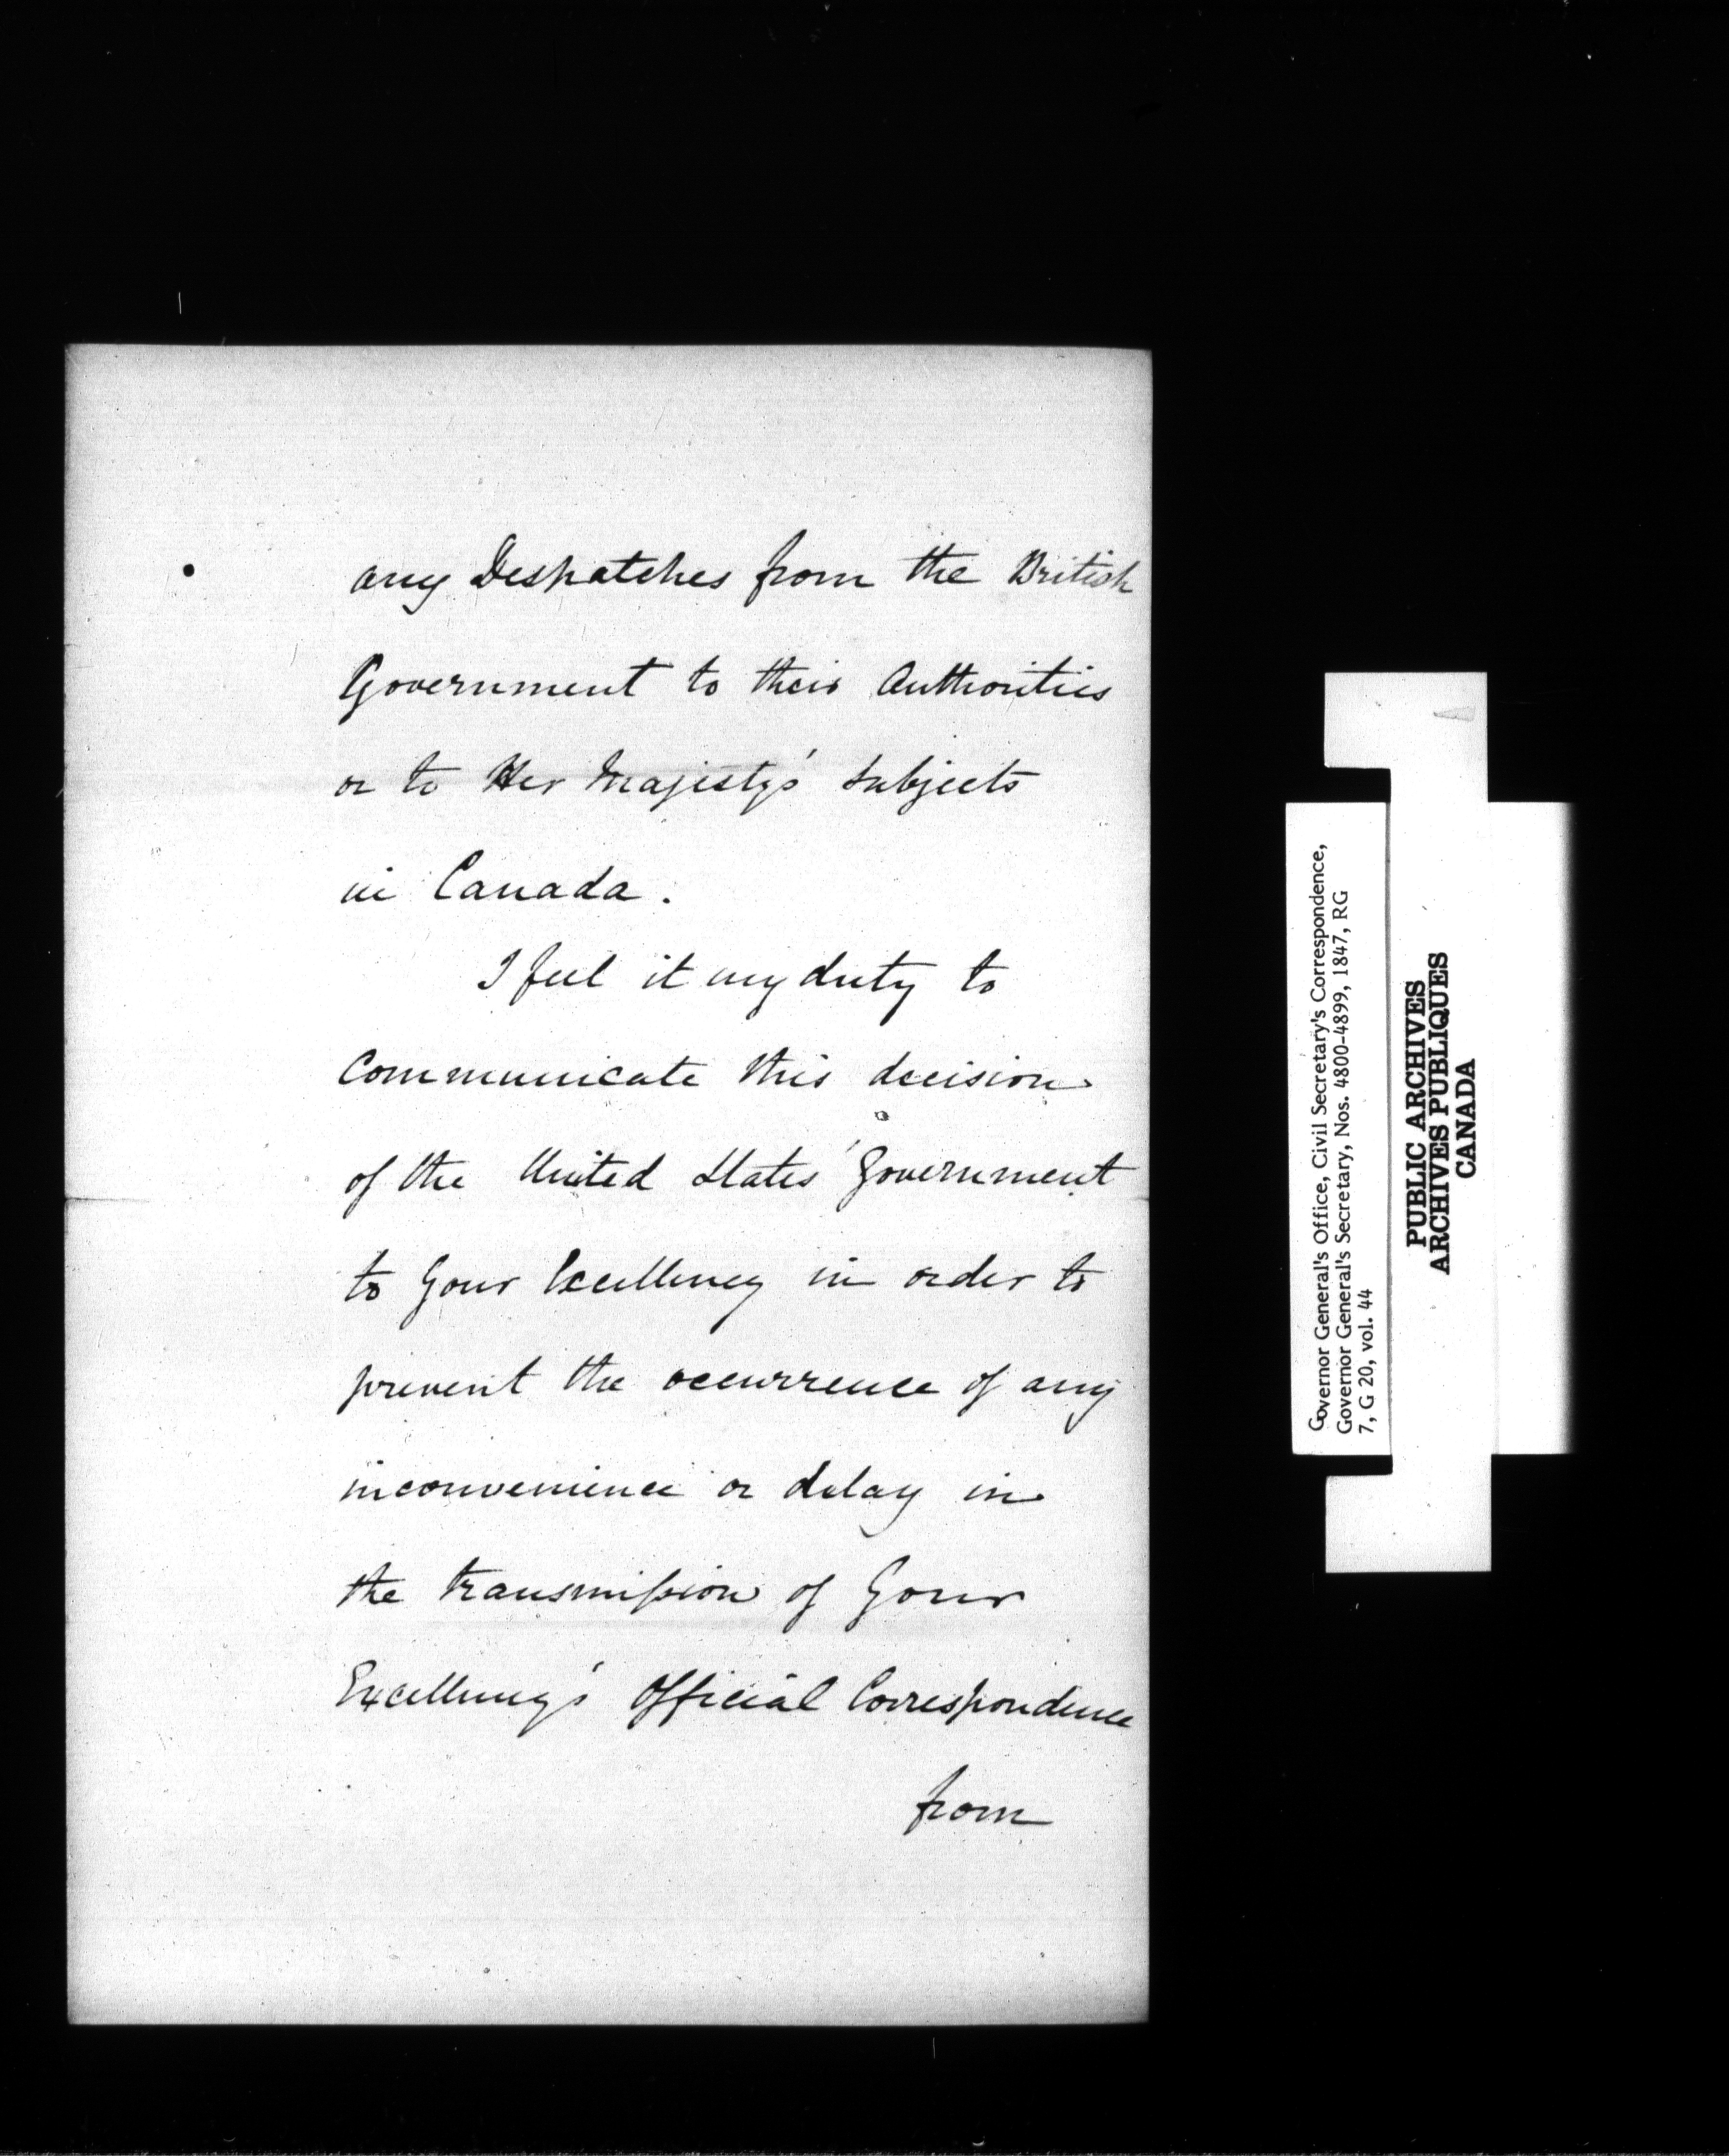 any Despatches from the British
Government to their Authorities
or to Her Majesty's Subjects
in Canada.
I feel it my duty to
Communicate this decision
of the United States' Government
to Your Excellency in order to
prevent the occurrence of any
inconvenience or delay in
the transmission of Your
Excellency's Official Correspondence
from
Governor General's Office, Civil Secretary's Correspondence,
Governor General's Secretary, Nos. 4800-4899, 1847, RG
7, G 20, vol. 44
PUBLIC ARCHIVES
ARCHIVES PUBLIQUES
CANADA